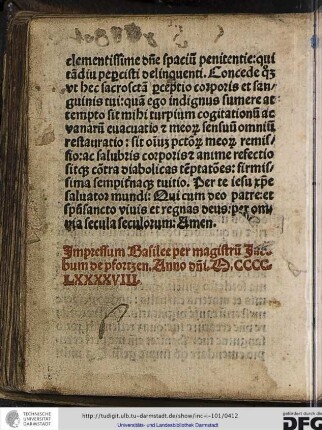 clementissime dñe spaciũ penitentie: qui
tãdiu peꝑcisti delinquenti. Concede q̃ȝ
vt hec sacrosctã ꝑceptio corporis et san-
guinis tui: quã ego indignus sumere at
tempto sit mihi turpium cogitationũ ac
vanarũ euacuatio ⁊ meoꝝ sensuũ omniũ
restauratio: sit oĩuȝ pctõꝝ meoꝝ remis-
sio: ac salubris corporis ⁊ anime refectio
sitqȝ cõtra diabolicas tẽptatões: firmis-
sima sempit̃naqȝ tuitio. Per te iesu xp̃e
saluator mundi: Qui cum deo patre: et
spũsancto viuis et regnas deus: per omi
nia secula seculorum: Amen.
Impressum Basilee per magistrũ Jac
bum de pfortzen. Anno dñi. M.CCCC
LXXXXVIII.
TECHNISCHE
UNIVERSITÄT
DARMSTADT
http://tudigit.ulb.tu-darmstadt.de/show/inc-i-101/0412
Universitäts- und Landesbibliothek Darmstadt
gefördert durch die
DFG